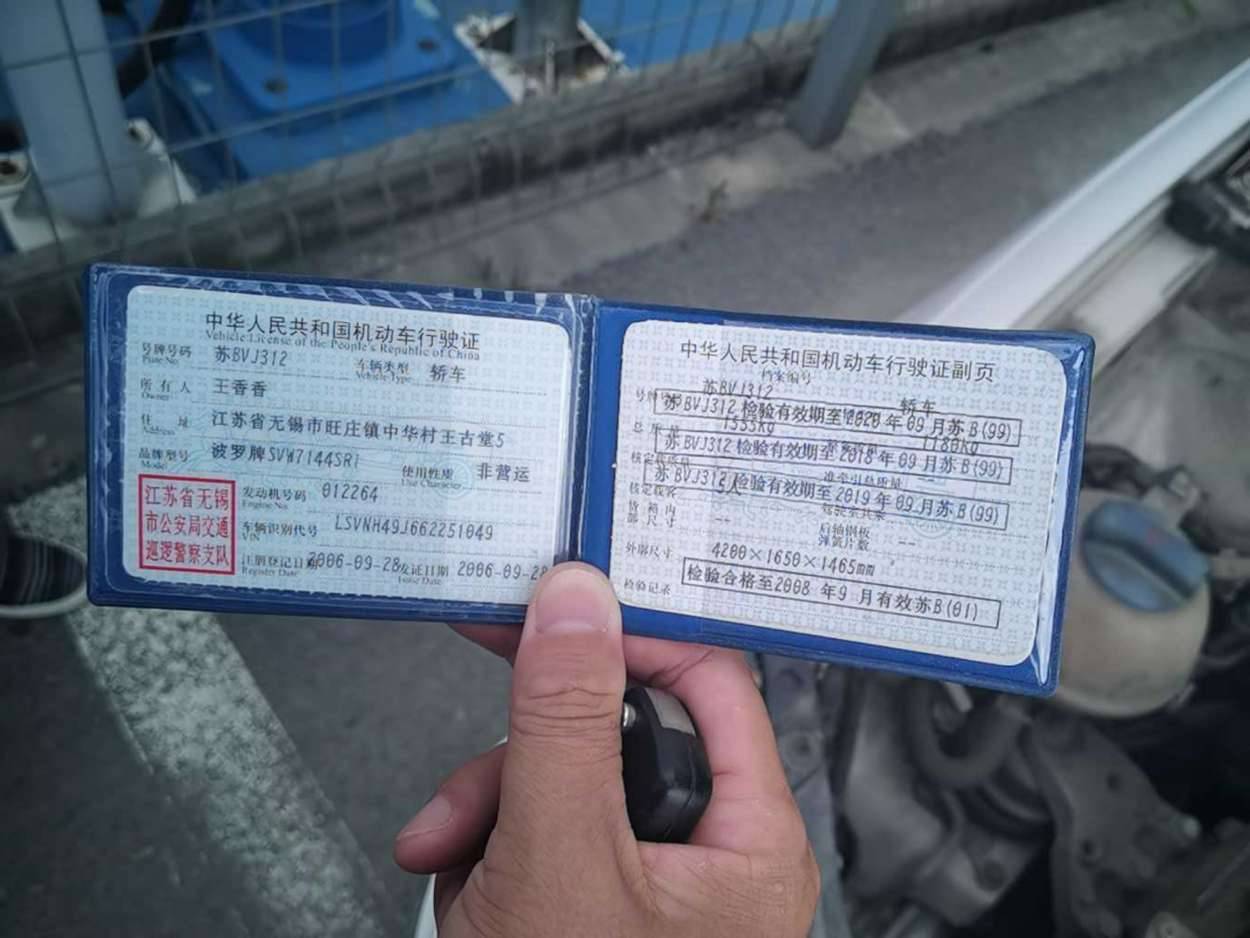 中华人民共和国机动车行驶证
Vehicle License of the People's Republic of China
号牌号码 苏BVJ312 车辆类型 轿车
Plate No. Vehicle Type
所有人 王香香
Owner
住 址 江苏省无锡市旺庄镇中华村王古堂5
Address
品牌型号 波罗牌SVW7144SRI 使用性质 非营运
Model Use Character
江苏省无锡
市公安局交通
巡逻警察支队
发动机号码 012264
Engine No.
车辆识别代号 LSVNH49J662251049
VIN
注册登记日期 2006-09-28 发证日期 2006-09-28
Registry Date Issue Date
中华人民共和国机动车行驶证副页
档案编号
号牌号码 苏BVJ312 轿车
苏BVJ312 检验有效期至2020年09月苏B(99)
总质量 1555Kg 1180Kg
苏BVJ312 检验有效期至2018年09月苏B(99)
准牵引总质量 --
苏BVJ312 检验有效期至2019年09月苏B(99)
核定载客 5人 驾驶室共乘
货箱内
部尺寸 --
后轴钢板
弹簧片数 --
外廓尺寸 4200×1650×1465mm
检验记录 检验合格至2008 年9 月有效苏B(01)